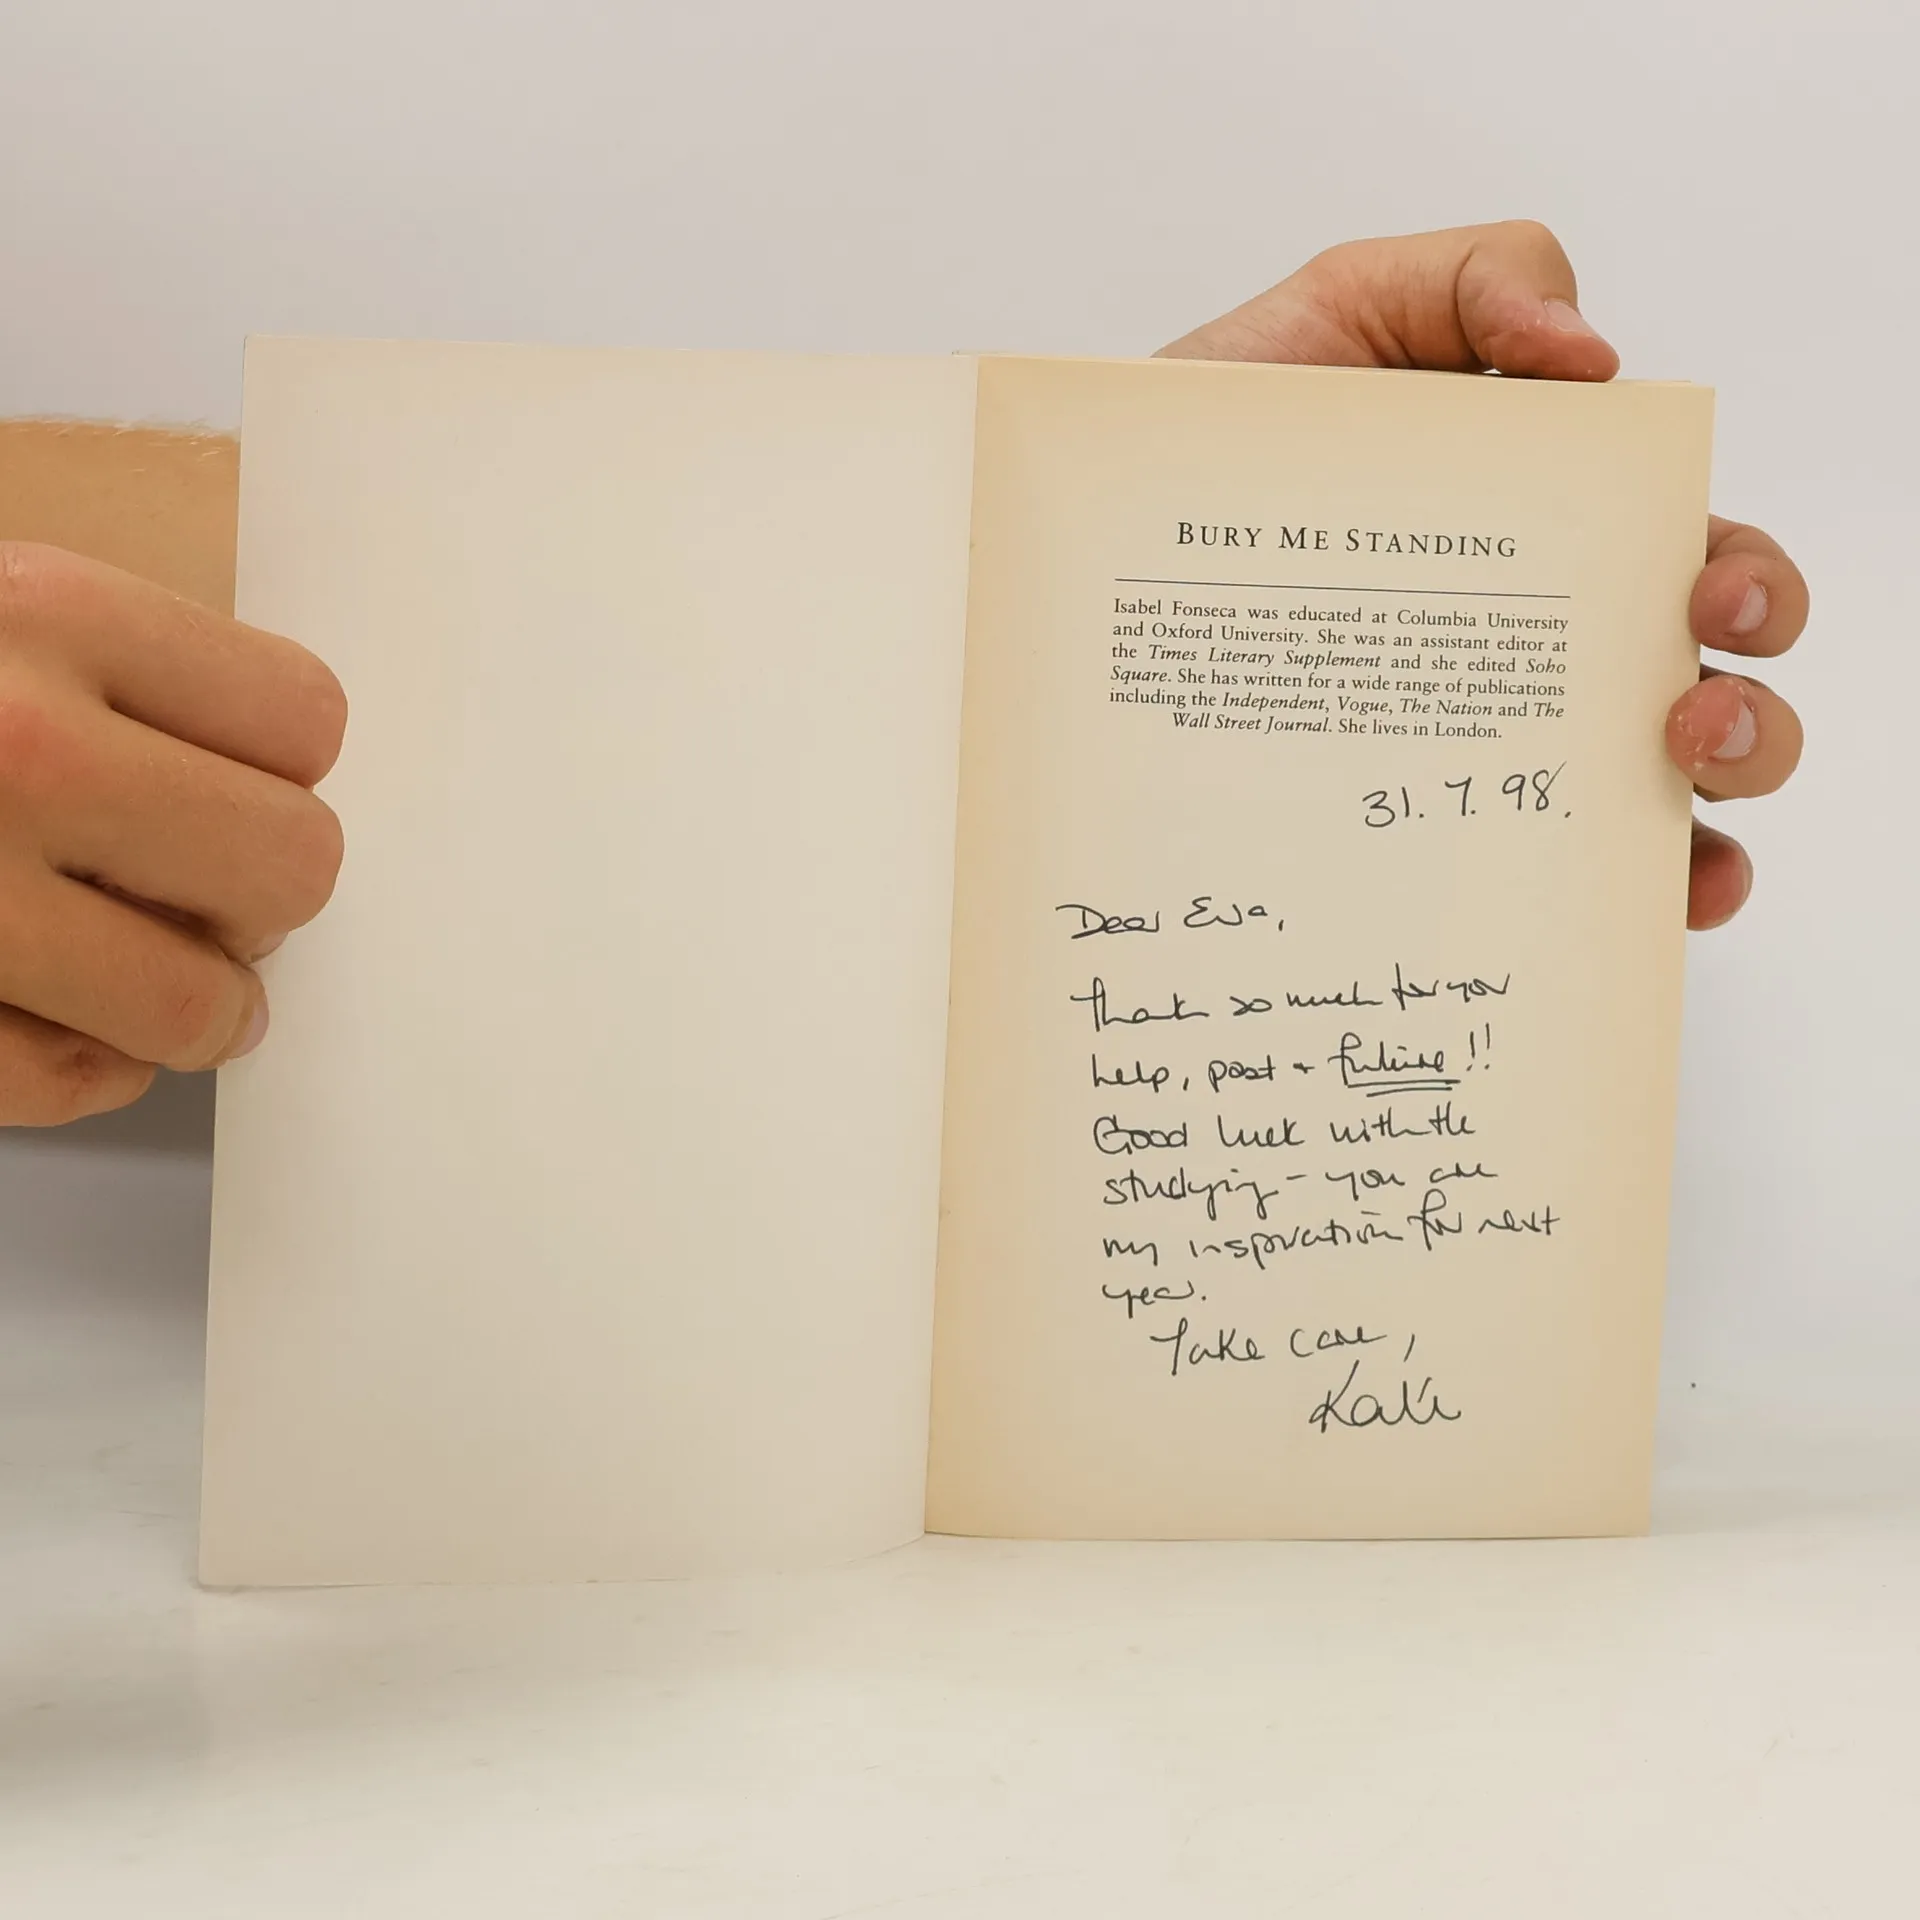 BURY ME STANDING
Isabel Fonseca was educated at Columbia University
and Oxford University. She was an assistant editor at
the Times Literary Supplement and she edited Soho
Square. She has written for a wide range of publications
including the Independent, Vogue, The Nation and The
Wall Street Journal. She lives in London.
31. 7. 98.
Dear Eva,
Thank so much for your
help, past + future!!
Good luck with the
studying - you are
my inspiration for next
year.
Take care,
Kate